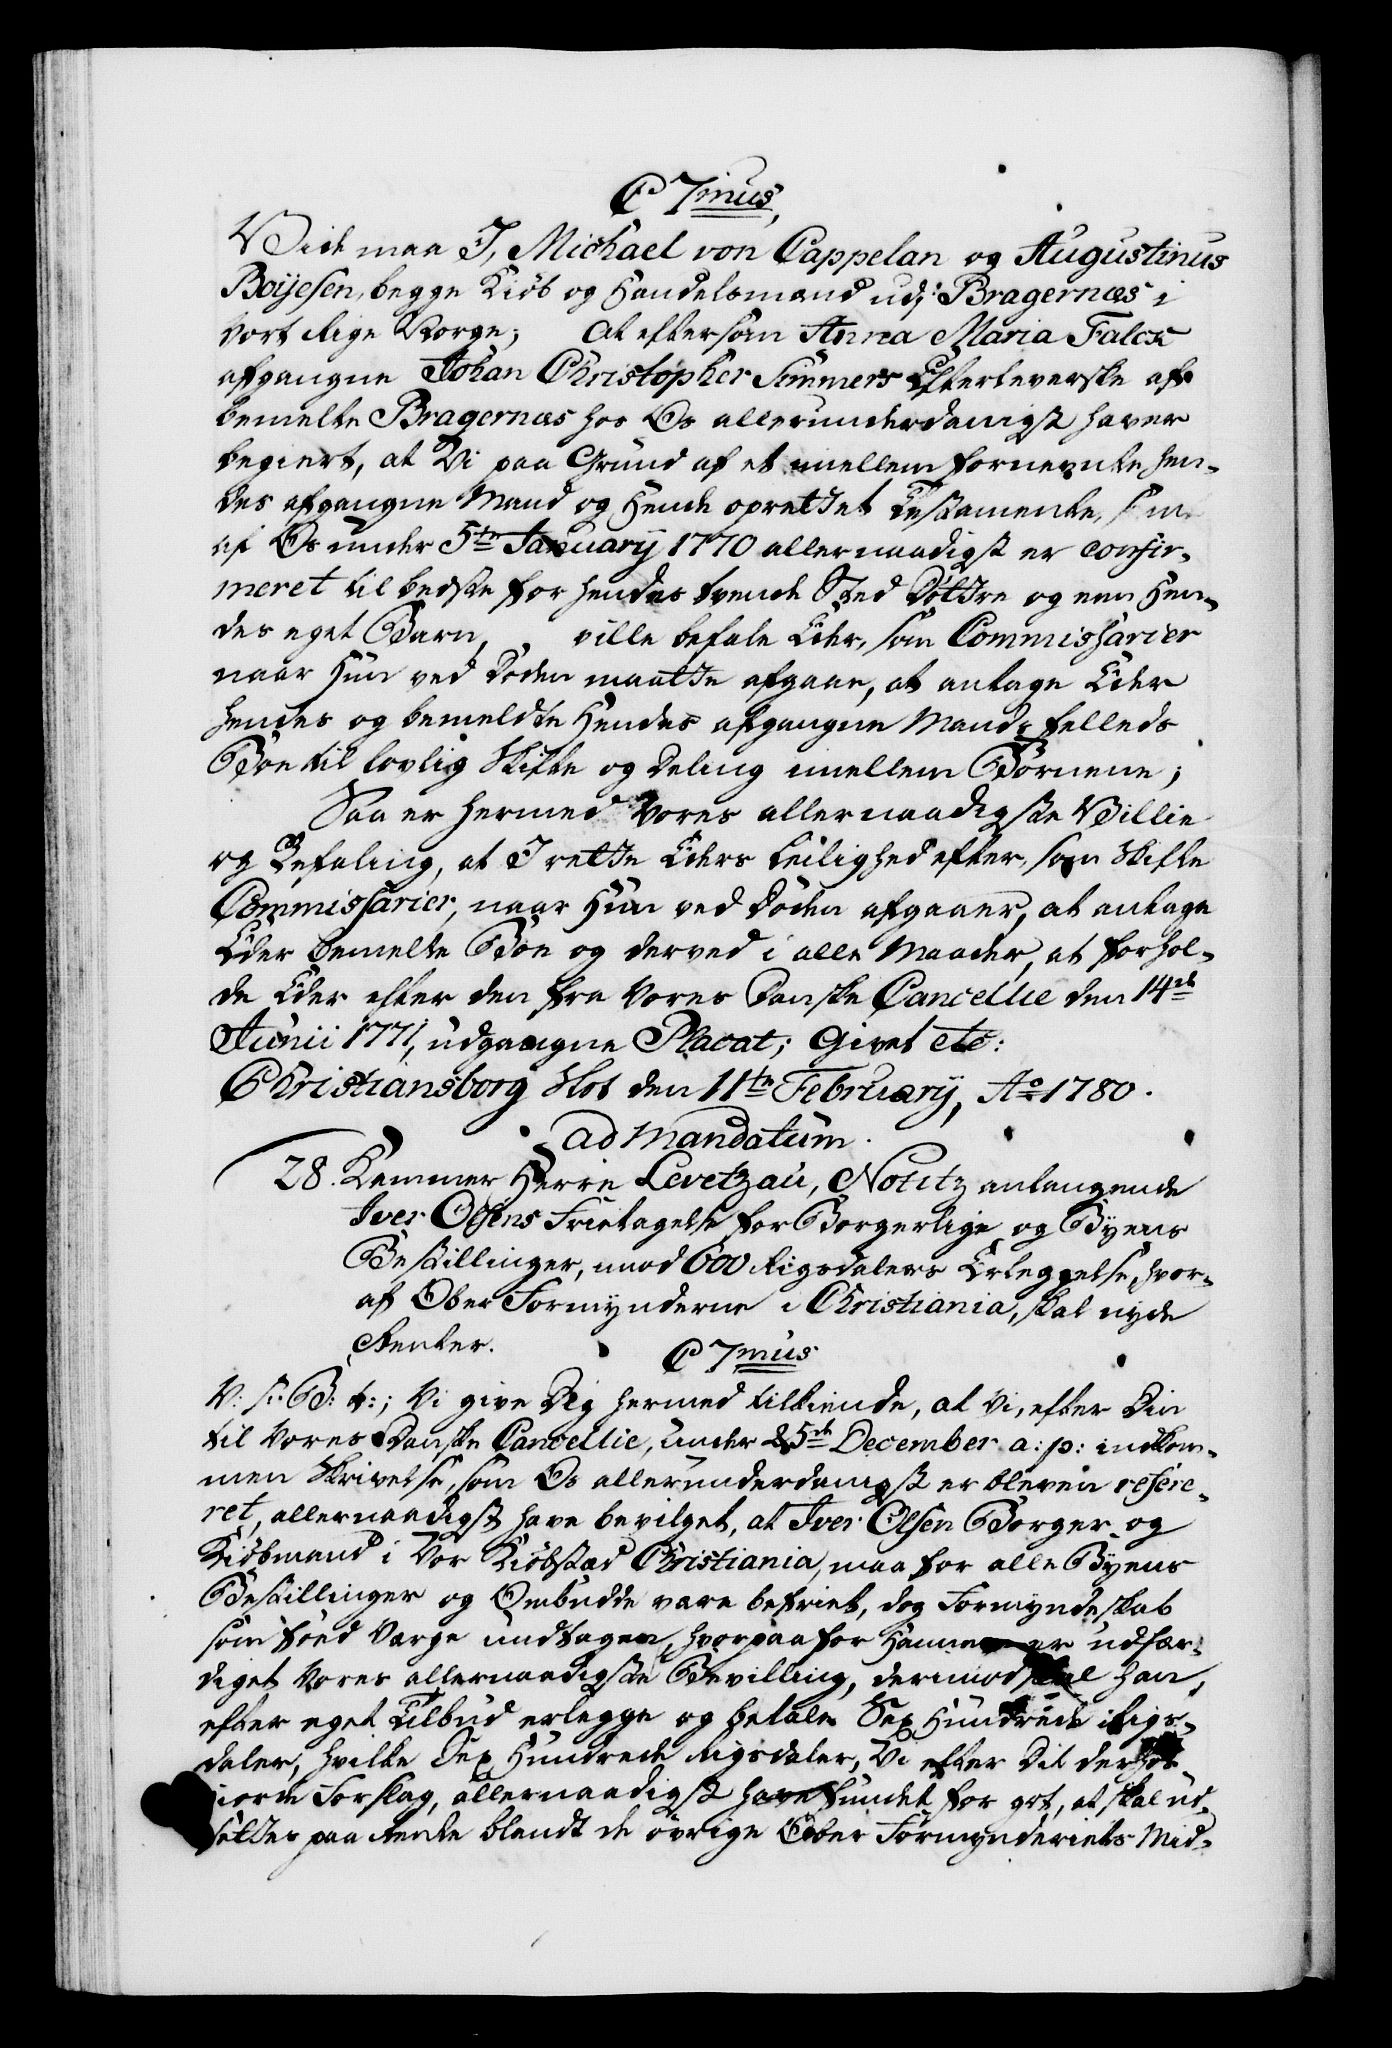 C 7mus,
Vide maa I, Michael von Cappelan og Augustinus
Boijesen, begge Kiøb og Handelsmænd udj: Bragernæs i
Vort Rige Norge; At eftersom Anna Maria Falck
afgangne Johan Christopher Simmers Efterleverske af
bemelte Bragernæs hos Os allerunderdanigst haver
begiert, at Vi paa Grund af et imellem fornevnte hen-
des afgangne Mand og Hende oprettet Testamente, som
af Os under 5te January 1770 allernaadigst er confir-
meret til bedste for hendes tvende Sted Døttre og een Hen-
des eget Barn, ville befale Eder, som Commissarier
naar Hun ved Døden maatte afgaae, at antage Eder
hendes og bemeldte Hendes afgangne Mands felleds
Boe til lovlig Skifte og Deling imellem Børnene;
Saa er hermed Vores allernaadigste Villie
og Befaling, at I rette Eders Leilighed efter, som Skifte
Commissarier, naar Hun ved Døden afgaaer, at antage
Eder bemelte Boe og derved i alle Maader, at forhol-
de Eder efter den fra Vores Danske Cancellie den 14de
Junii 1771, udgangne Placat; Givet etc:
Christiansborg Slot den 11te February, Ao 1780.
ad Mandatum.
28. Kammer Herre Levetzau, Notitz anlangende
Iver Olsens Fritagelse for Borgerlige og Byens
Bestillinger, imod 600 Rigsdalers Erleggelse, hvor-
af Ober Formynderne i Christiania, skal nyde
Renter.
C 7mus
V: s: B: t:; Vi give Dig hermed tilkiende, at Vi, efter Din
til Vores Danske Cancellie, under 25de December a: p: indkom-
men Skrivelse, som Os allerunderdanigst er bleven refere-
ret, allernaadigst have bevilget, at Iver Olsen Borger og
Kiøbmand i Vor Kiøbstad Christiania, maa for alle Byens
Bestillinger og Ombudde være befriet, dog Formynderskab
som fød Værge undtagen, hvorpaa for Hannem er udfær-
diget Vores allernaadigste Bevilling, derimod skal han,
efter eget Tilbud erlegge og betale Sex Hundrede Rigs-
daler, hvilke Sex Hundrede Rigsdaler, Vi efter Dit derhos
giorde Forslag, allernaadigst have fundet for got, at skal ud-
settes paa Rente blandt de øvrige Ober Formynderiets Mid-